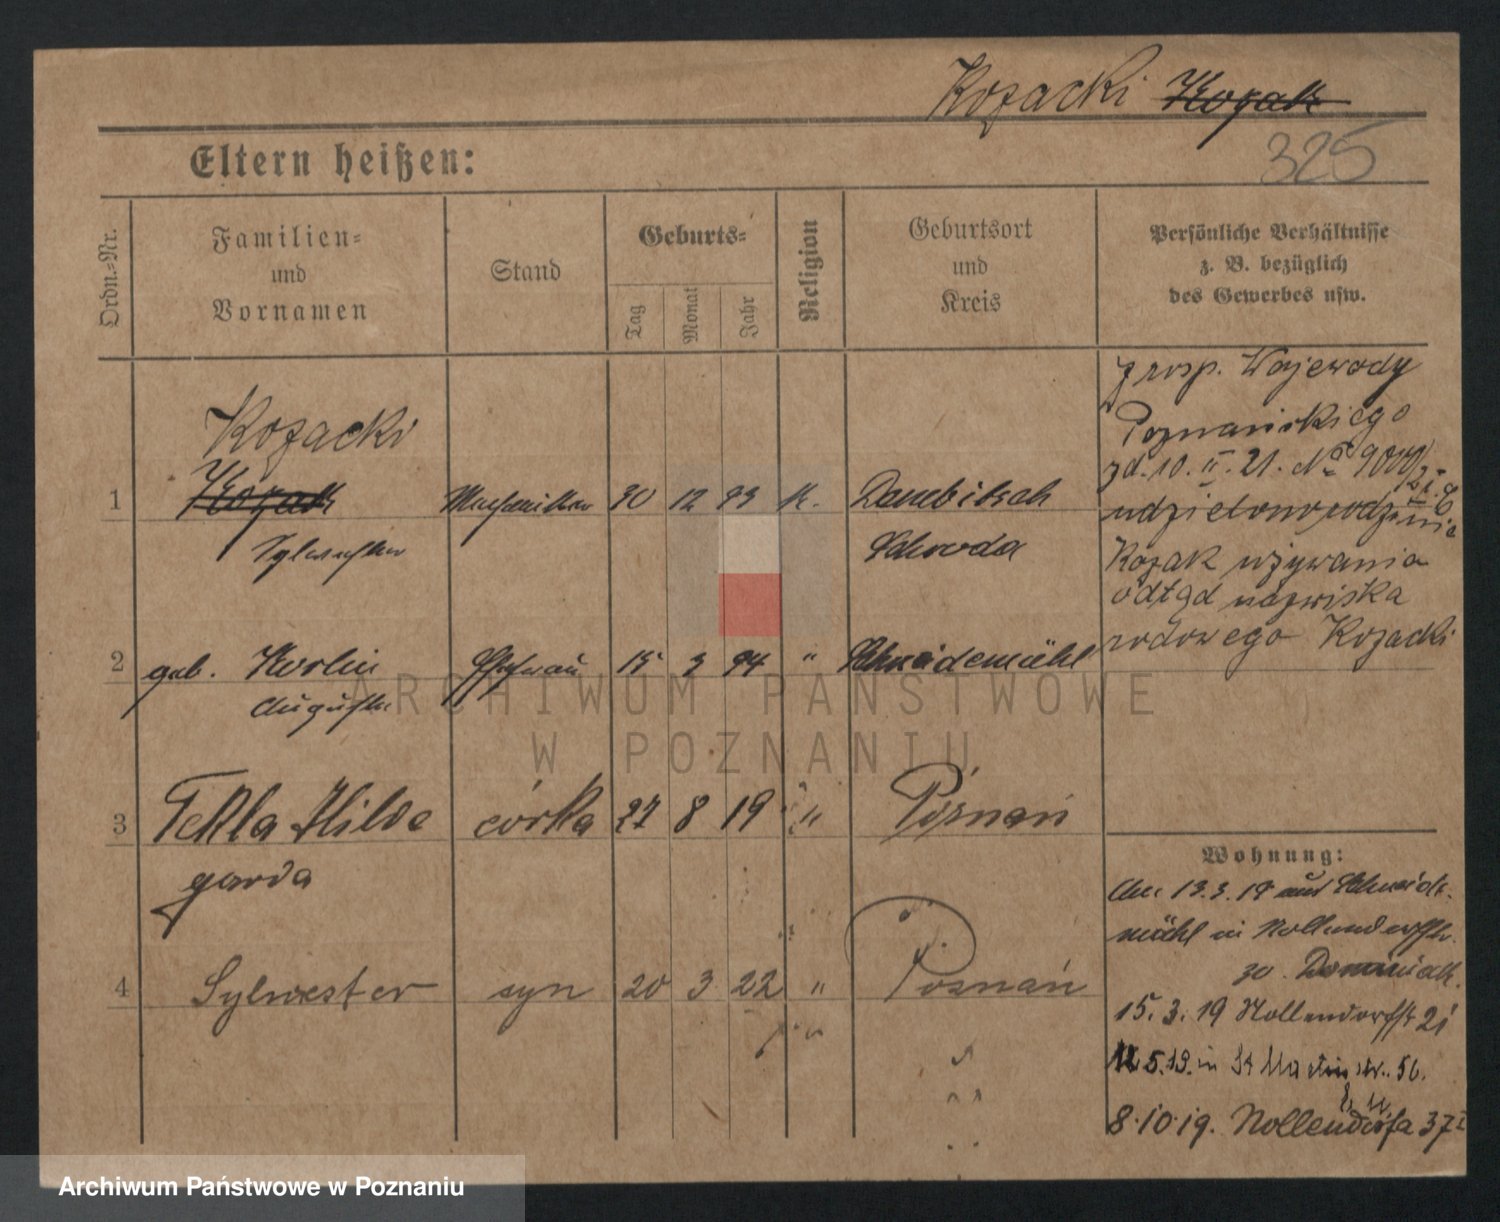 Kozacki Kozak
325
Eltern heißen:
Ordn.-Nr.
Familien-
und
Vornamen
Stand
Geburts-
Tag
Monat
Jahr
Religion
Geburtsort
und
Kreis
Persönliche Verhältnisse
z. B. bezüglich
des Gewerbes usw.
Kozacki
1 Kozak
Sylvester
12 93 K.
Schroda
z rosp. Wojewody
Poznańskiego
zd. 10. II. 21. No
udzielono rodzinie
Kozak używania
odtąd nazwiska
rodowego Kozacki
2 geb. Korlin Ehefrau 15 3 94 " Schneidemühl
Auguste
3 Tekla Hilde córka 27 8 19 " Poznań
garda
4 Sylwester syn 20 3 22 " Poznań
Wohnung:
13.3.19 aus Schneide-
mühl in Nollendorffstr.
30
15.3.19 Nollendorffstr 21
5.19. in St Martinstr. 56.
8.10.19. Nollendorfa 37 I
ARCHIWUM PAŃSTWOWE
W POZNANIU
Archiwum Państwowe w Poznaniu